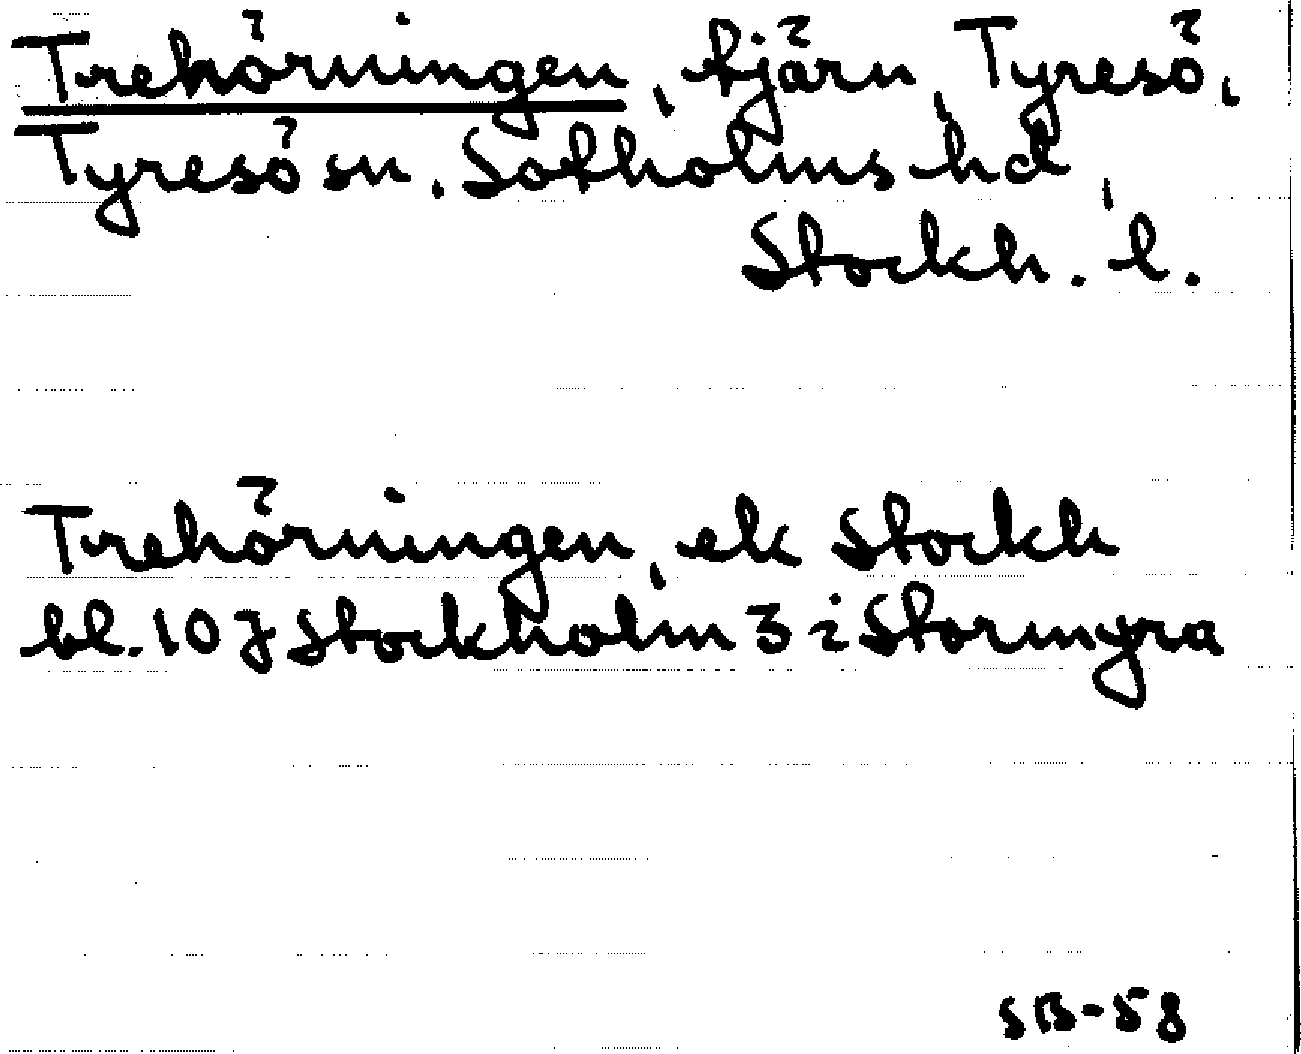 Trehörningen, tjärn, Tyresö,
Tyresö sn. Sotholms hd,
Stockh. l.
Trehörningen, ek Stockh
bl. 10 J Stockholm 3 i Stormyra
SB-58